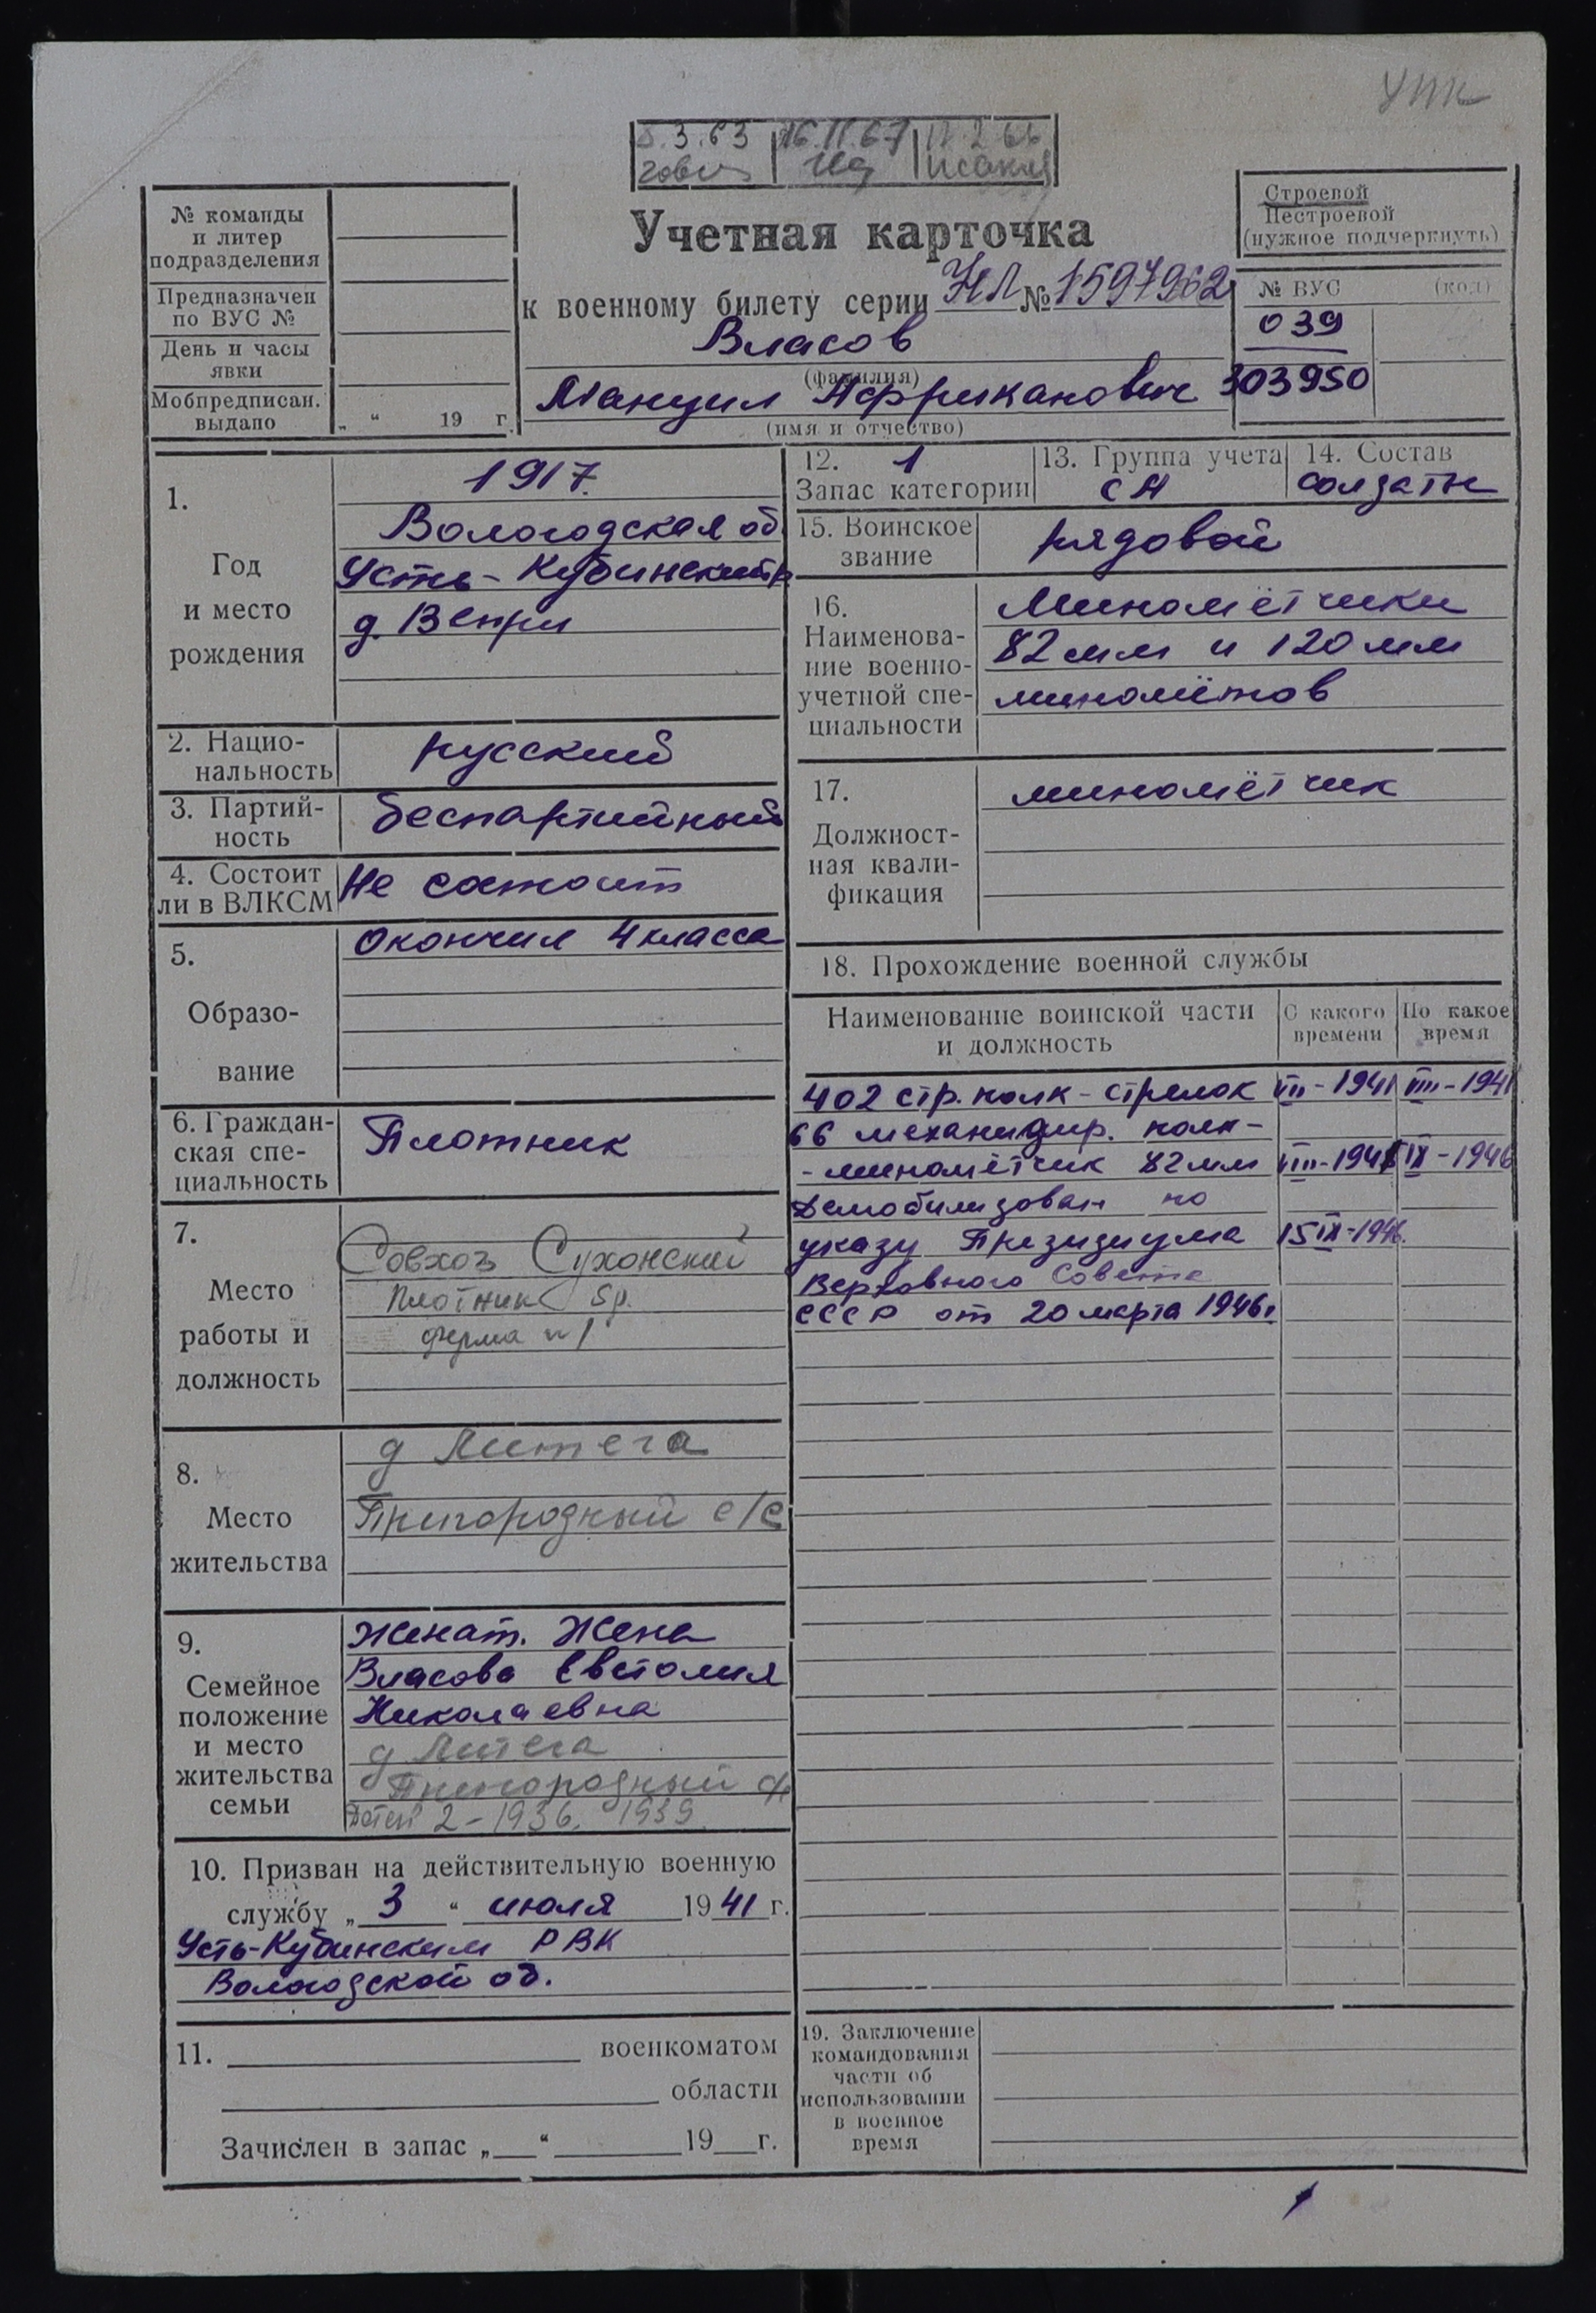 УПК
5.3.63 16.11.67 17.2.66
№ команды
и литер
подразделения
Предназначен
по ВУС №
День и часы
явки
Мобпредписан.
выдано
„ “ 19 г.
Учетная карточка
к военному билету серии НЛ № 1597962
Власов
(фамилия)
Мануил Африканович
(имя и отчество)
Строевой
Нестроевой
(нужное подчеркнуть)
№ ВУС (код)
039
303950
1.
Год
и место
рождения
1917.
Вологодская об.
Усть-Кубинский р.
д. Венри
2. Нацио-
нальность
русский
3. Партий-
ность
беспартийный
4. Состоит
ли в ВЛКСМ
Не состоит
5.
Образо-
вание
Окончил 4 класса
6. Граждан-
ская спе-
циальность
Плотник
7.
Место
работы и
должность
Совхоз Сухонский
плотник 5р.
ферма №1
8.
Место
жительства
д Литега
Пригородный с/с
9.
Семейное
положение
и место
жительства
семьи
Женат. Жена
Власова Евстолия
Николаевна
д Литега
Пригородный с/с
Детей 2 - 1936, 1939.
10. Призван на действительную военную
службу „ 3 “ июля 1941 г.
Усть-Кубинским РВК
Вологодской об.
11. военкоматом
области
Зачислен в запас „ “ 19 г.
12. 1
Запас категории
13. Группа учета
СА
14. Состав
солдаты
15. Воинское
звание
рядовой
16.
Наименова-
ние военно-
учетной спе-
циальности
Миномётчики
82 мм и 120 мм
миномётов
17.
Должност-
ная квали-
фикация
миномётчик
18. Прохождение военной службы
Наименование воинской части
и должность
С какого
времени
По какое
время
402 стр. полк - стрелок VII-1941 VIII-1941
66 механизир. полк -
- миномётчик 82 мм VIII-1941 IX-1946
Демобилизован по
указу Президиума 15 IX-1946.
Верховного Совета
СССР от 20 марта 1946г.
19. Заключение
командования
части об
использовании
в военное
время